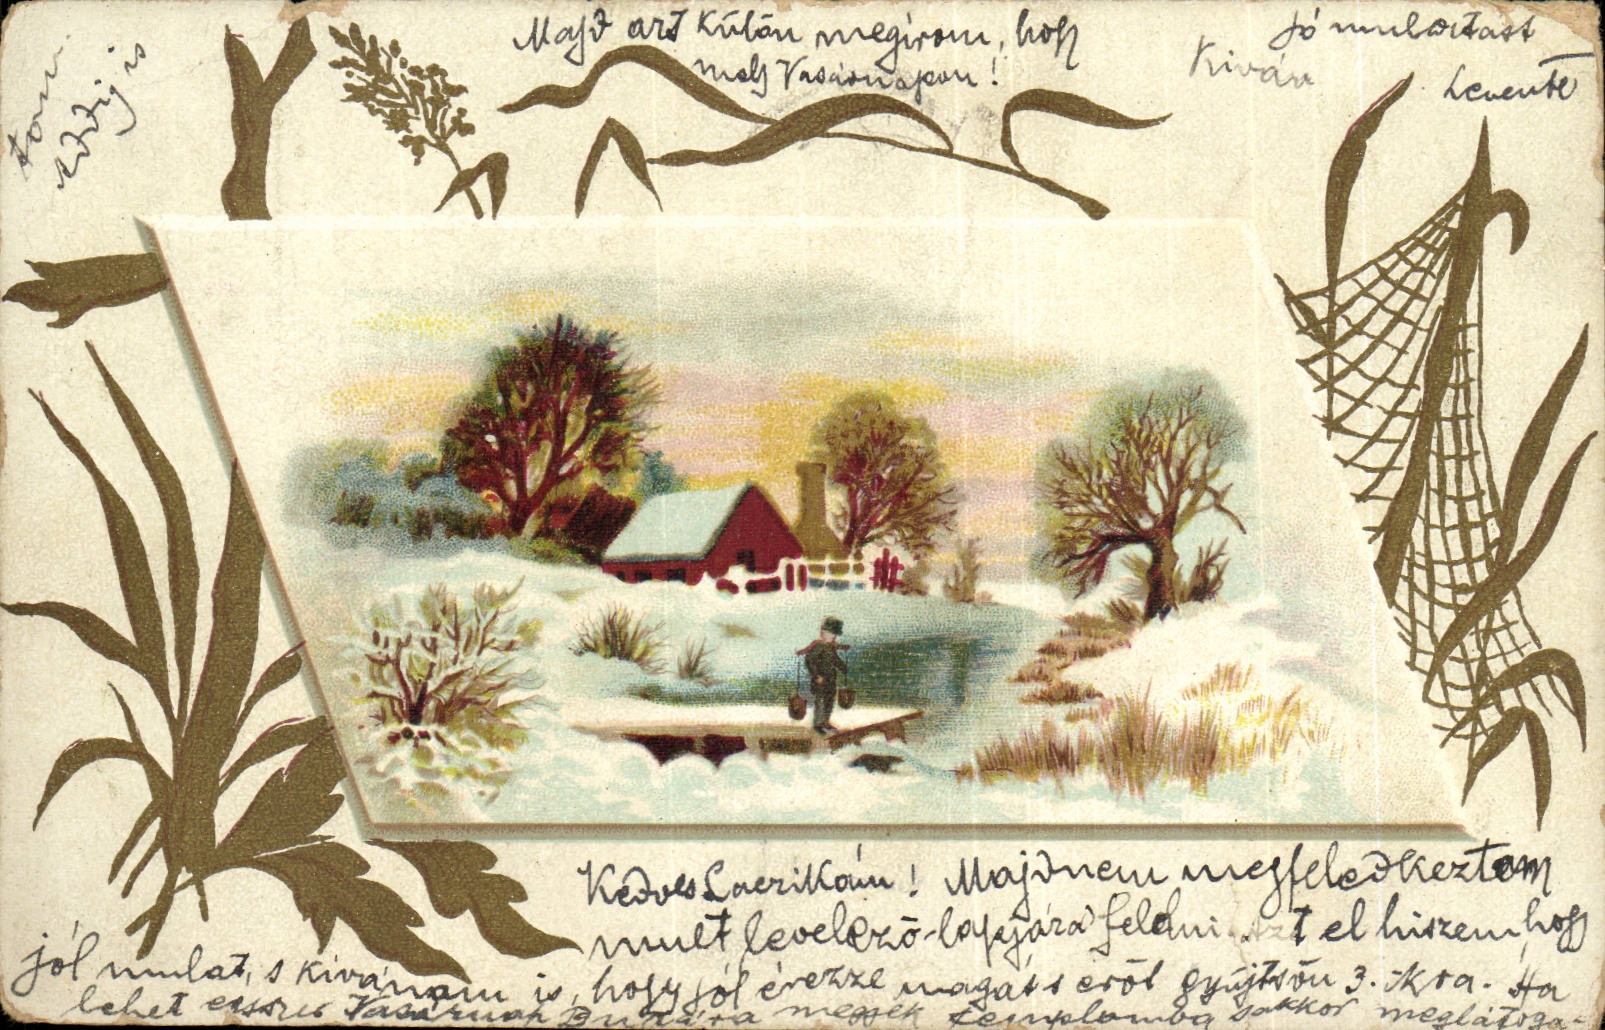 Kedves Laczikám! Majdnem megfeledkeztem
mult levelező-lapjára felelni. Azt el hiszem hogy
jól mulat, s kívánom is, hogy jól érezze magát s eröt gyűjtsön 3. Kra. Ha
lehet esszus Vasárnap Budára megyek templomba s akkor meglátoga-
tom
Addig is
Majd azt külön megirom, hogy
mely Vasárnapon!
Jó mulatást
Kíván
Levente